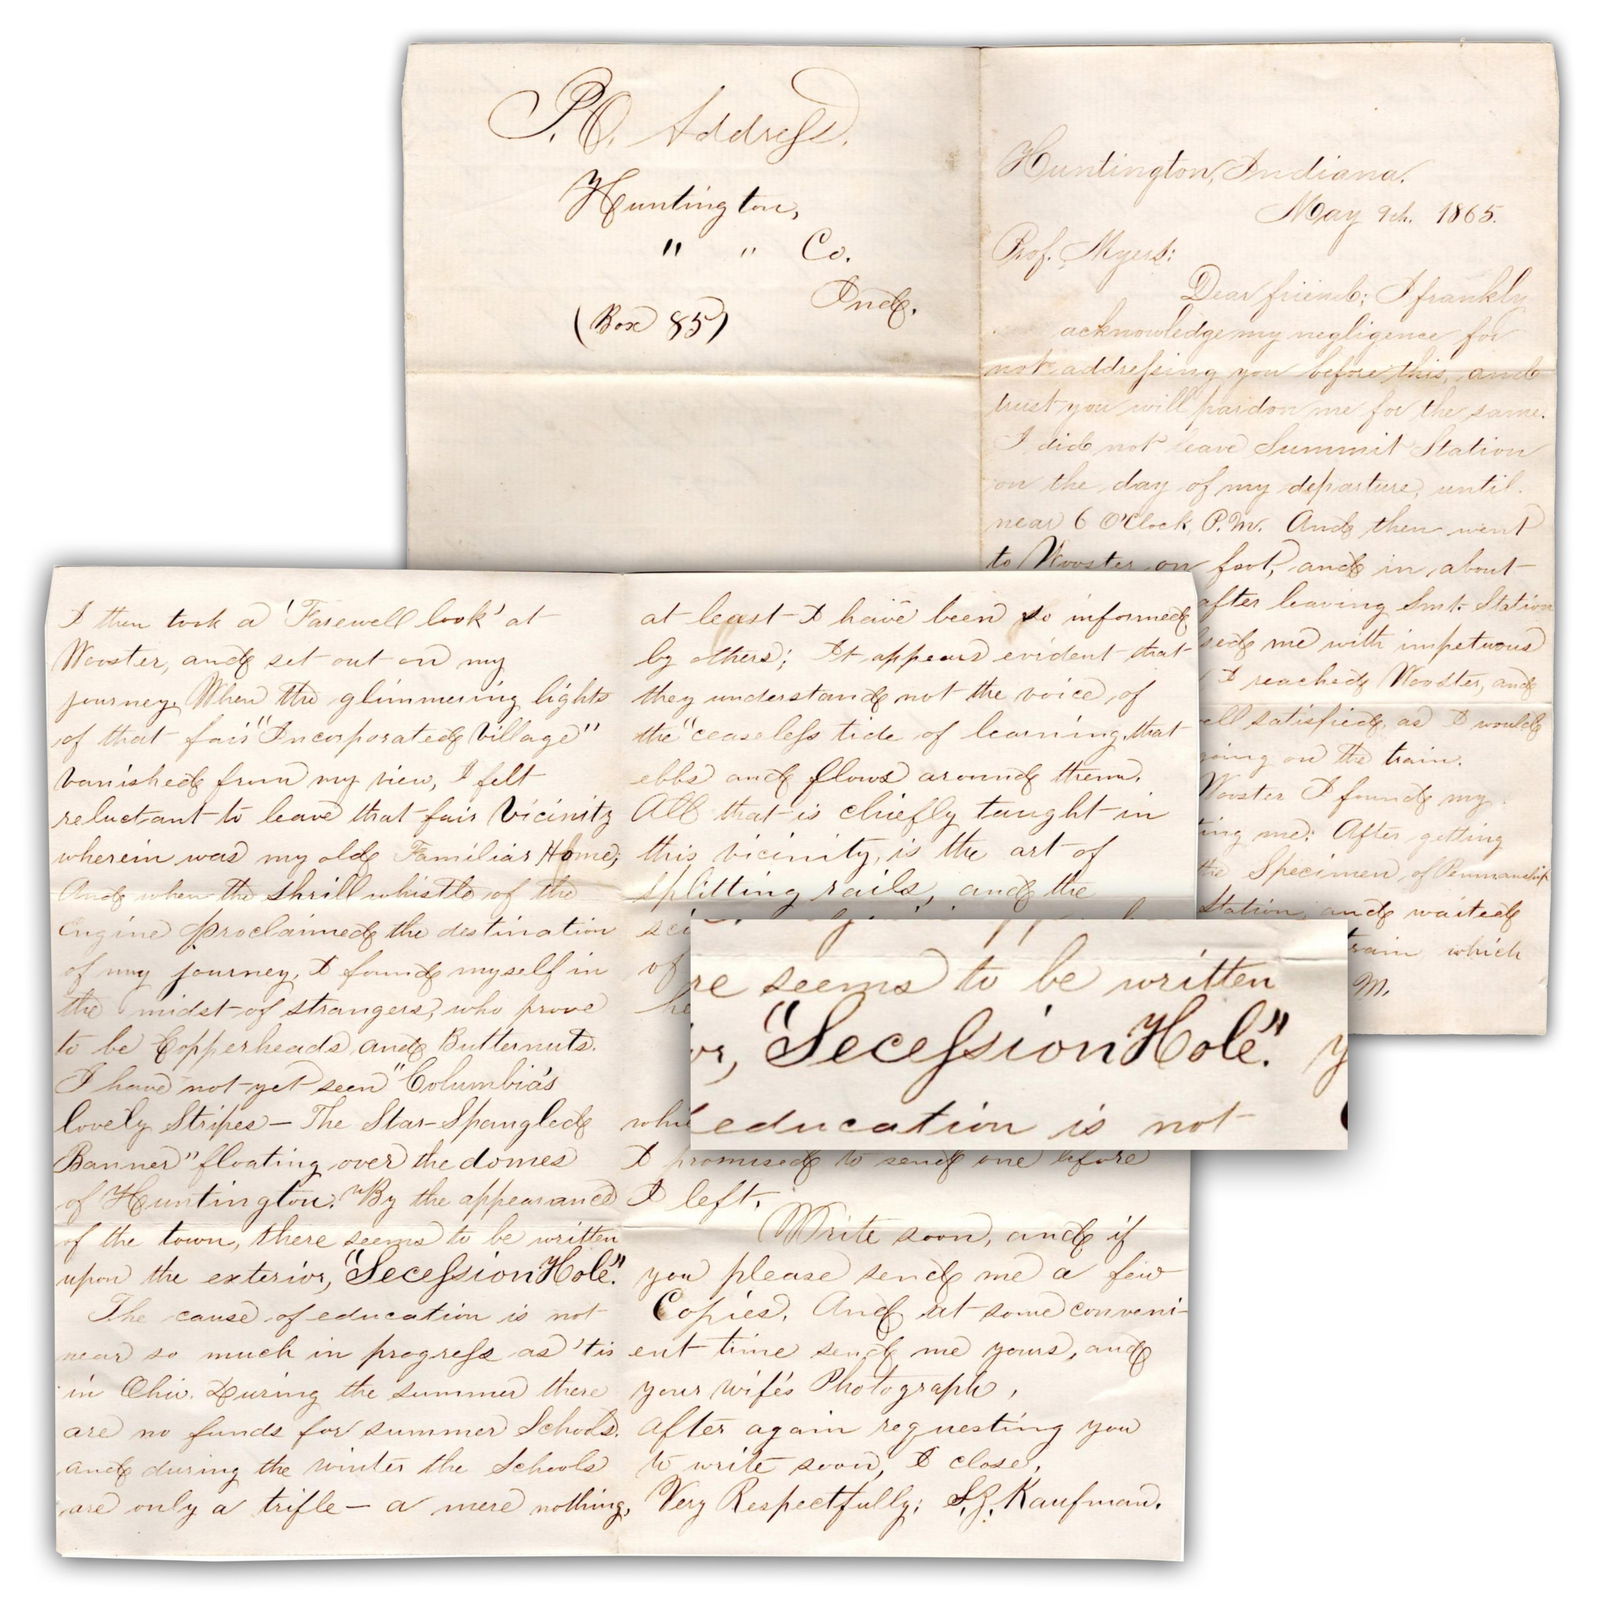 P.O. Address.
Huntington,
" " Co.
Ind.
(Box 85)
Huntington, Indiana.
May 9th. 1865.
Prof. Myers:
Dear friend; I frankly
acknowledge my negligence for
not addressing you before this, and
trust you will pardon me for the same.
I did not leave Summit Station
on the day of my departure, until
near 6 O'Clock, P.M. And then went
to Wooster on foot, and in about
after leaving Smt. Station
me with impetuous
I reached Wooster, and
satisfied, as I would
on the train.
Wooster I found my
me: After getting
the Specimen of Penmanship
Station, and waited
train which
M.
I then took a 'Farewell look' at
Wooster, and set out on my
journey. When the glimmering lights
of that fair "Incorporated Village"
vanished from my view, I felt
reluctant to leave that fair Vicinity
wherein was my old Familiar Home;
And when the shrill whistle of the
Engine proclaimed the destination
of my journey, I found myself in
the midst of strangers, who prove
to be Copperheads and Butternuts.
I have not yet seen "Columbia's
lovely Stripes — The Star-Spangled
Banner" floating over the domes
of Huntington. By the appearance
of the town, there seems to be written
upon the exterior, "Secession Hole".
The cause of education is not
near so much in progress as 'tis
in Ohio. During the summer there
are no funds for summer Schools.
and during the winter the Schools
are only a trifle — a mere nothing,
at least I have been so informed
by others; It appears evident that
they understand not the voice of
the "ceaseless tide of learning, that
ebbs and flows around them.
All that is chiefly taught in
this vicinity, is the art of
splitting rails, and the
sci
of
he
whi
I promised to send one before
I left.
Write soon, and if
you please send me a few
Copies. And at some conveni-
ent time send me yours, and
your wife's Photograph.
After again requesting you
to write soon, I close,
Very Respectfully; S.J. Kaufman.
re seems to be written
or, "Secession Hole".
education is not